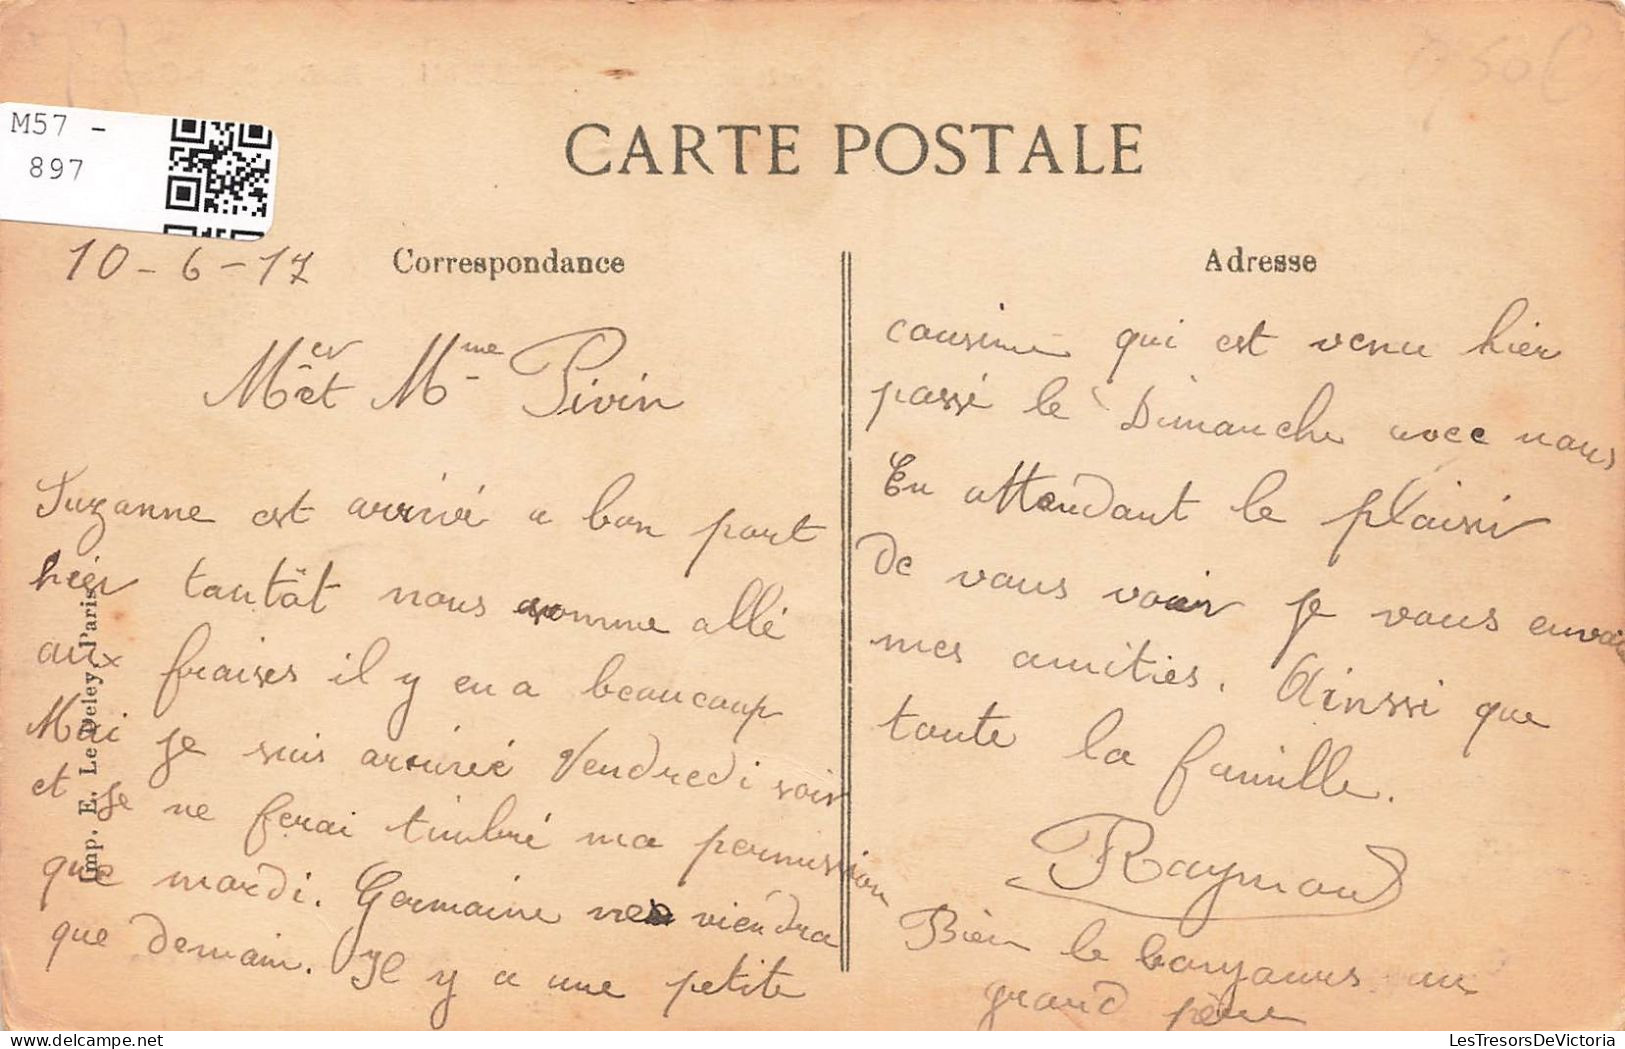 7,50€
M57 -
897
CARTE POSTALE
10-6-17
Correspondance
Adresse
Mer et Mme Pivin
Suzanne est arrivé a bon port
hier tantôt nous somme allé
aux fraises il y en a beaucoup
Moi je suis arrivé Vendredi soir
et je ne ferai timbré ma permission
que mardi. Germaine ne viendra
que demain. Il y a une petite
cousine qui est venu hier
passé le Dimanche avec nous
En attendant le plaisir
de vous voir je vous envoie
mes amitiés. Ainssi que
toute la famille.
Raymond
Bien le bonjours au
grand père
Imp. E. Le Deley, Paris
LesTresorsDeVictoria